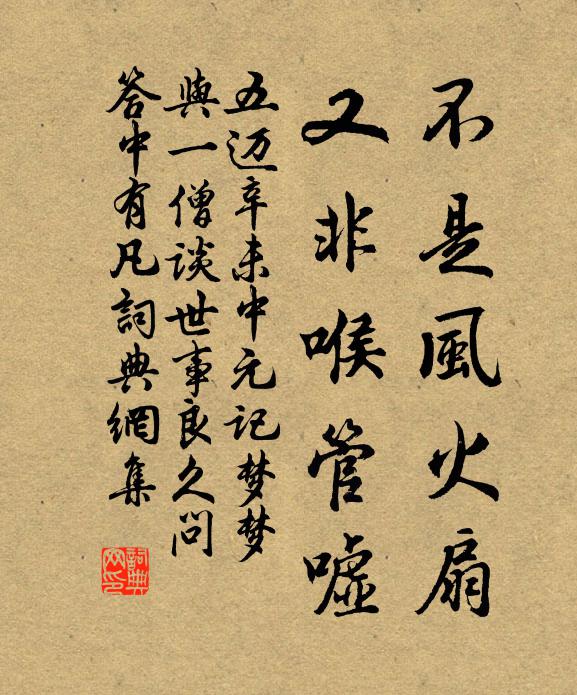 不是風火扇
又非喉管噓
五迈辛未中元记梦梦
與一僧談世事良久问
答中有凡詞典網集
詞典网印